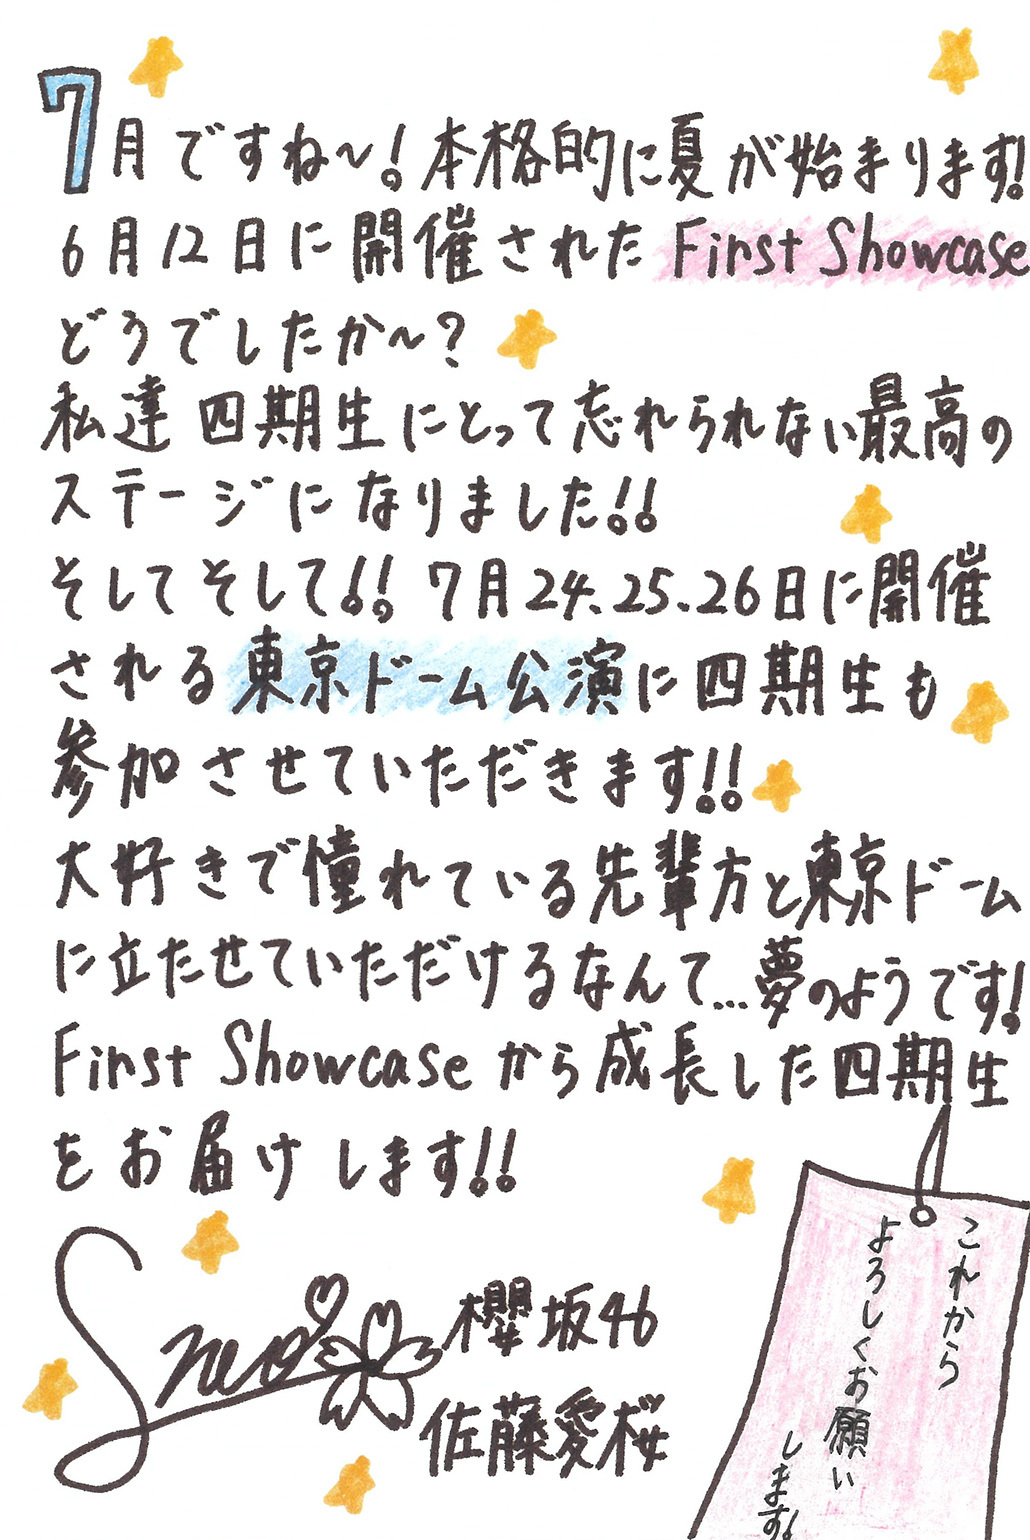 7月ですね〜!本格的に夏が始まります!
6月12日に開催されたFirst Showcase
どうでしたか〜?
私達四期生にとって忘れられない最高の
ステージになりました!!
そしてそして!! 7月24.25.26日に開催
される東京ドーム公演に四期生も
参加させていただきます!!
大好きで憧れている先輩方と東京ドーム
に立たせていただけるなんて…夢のようです!
First Showcaseから成長した四期生
をお届けします!!
櫻坂46
佐藤愛桜
これから
よろしくお願い
します!